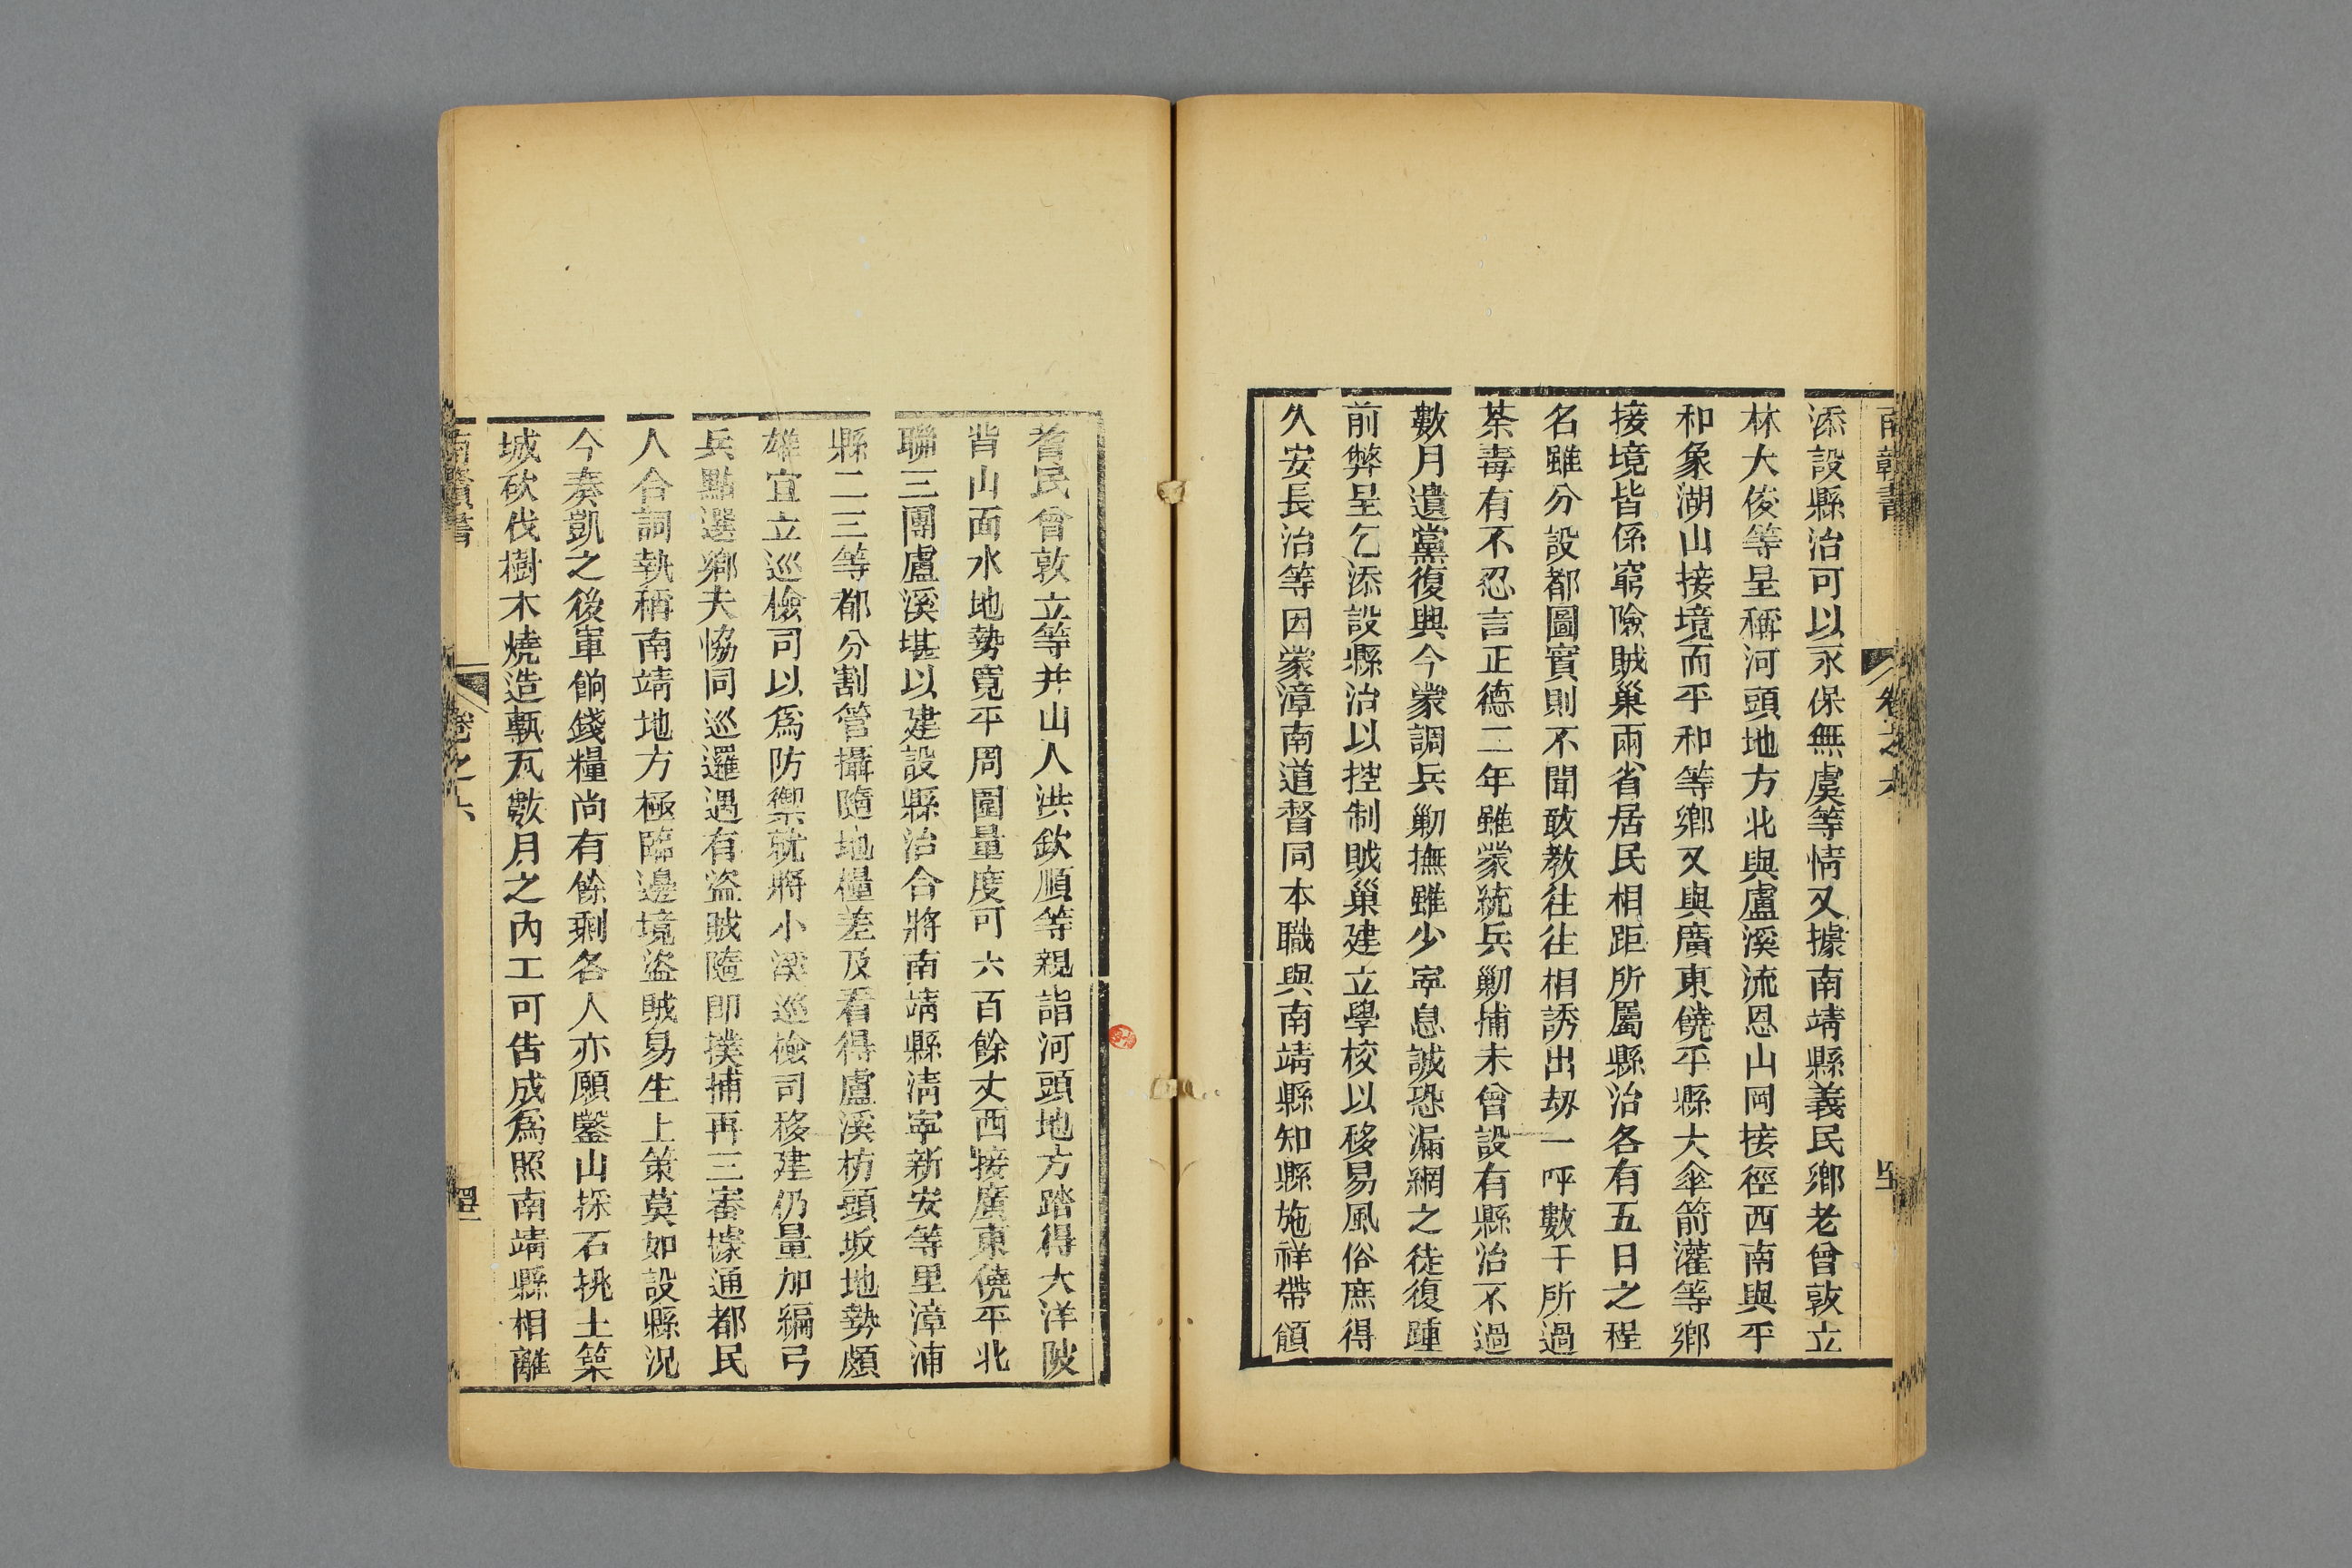 添設縣治可以永保無虞等情又據南靖縣義民鄉老曾敦立
林大俊等呈稱河頭地方北與盧溪流恩山岡接徑西南與平
和象湖山接境而平和等鄉又與廣東饒平縣大傘箭灌等鄉
接境皆係窮險賊巢兩省居民相距所屬縣治各有五日之程
名雖分設都圖實則不聞政教往往相誘出刼一呼數千所過
荼毒有不忍言正德二年雖蒙統兵勦捕未曾設有縣治不過
數月遺黨復興今蒙調兵勦撫雖少寧息誠恐漏網之徒復踵
前弊呈乞添設縣治以控制賊巢建立學校以移易風俗庶得
久安長治等因蒙漳南道督同本職與南靖縣知縣施祥帶領
耆民曾敦立等并山人洪欽順等親詣河頭地方踏得大洋陂
背山面水地勢寬平周圍量度可六百餘丈西接廣東饒平北
聯三團盧溪堪以建設縣治合將南靖縣清寧新安等里漳浦
縣二三等都分割管攝隨地糧差及看得盧溪枋頭坂地勢頗
雄宜立巡檢司以為防禦就將小溪巡檢司移建仍量加編弓
兵點選鄉夫恊同巡邏遇有盜賊隨即撲捕再三審據通都民
人合詞執稱南靖地方極臨邊境盜賊易生上策莫如設縣況
今奏凱之後軍餉錢糧尚有餘剩各人亦願鑿山採石挑土築
城砍伐樹木燒造甎瓦數月之內工可告成為照南靖縣相離
南贛書
卷之六